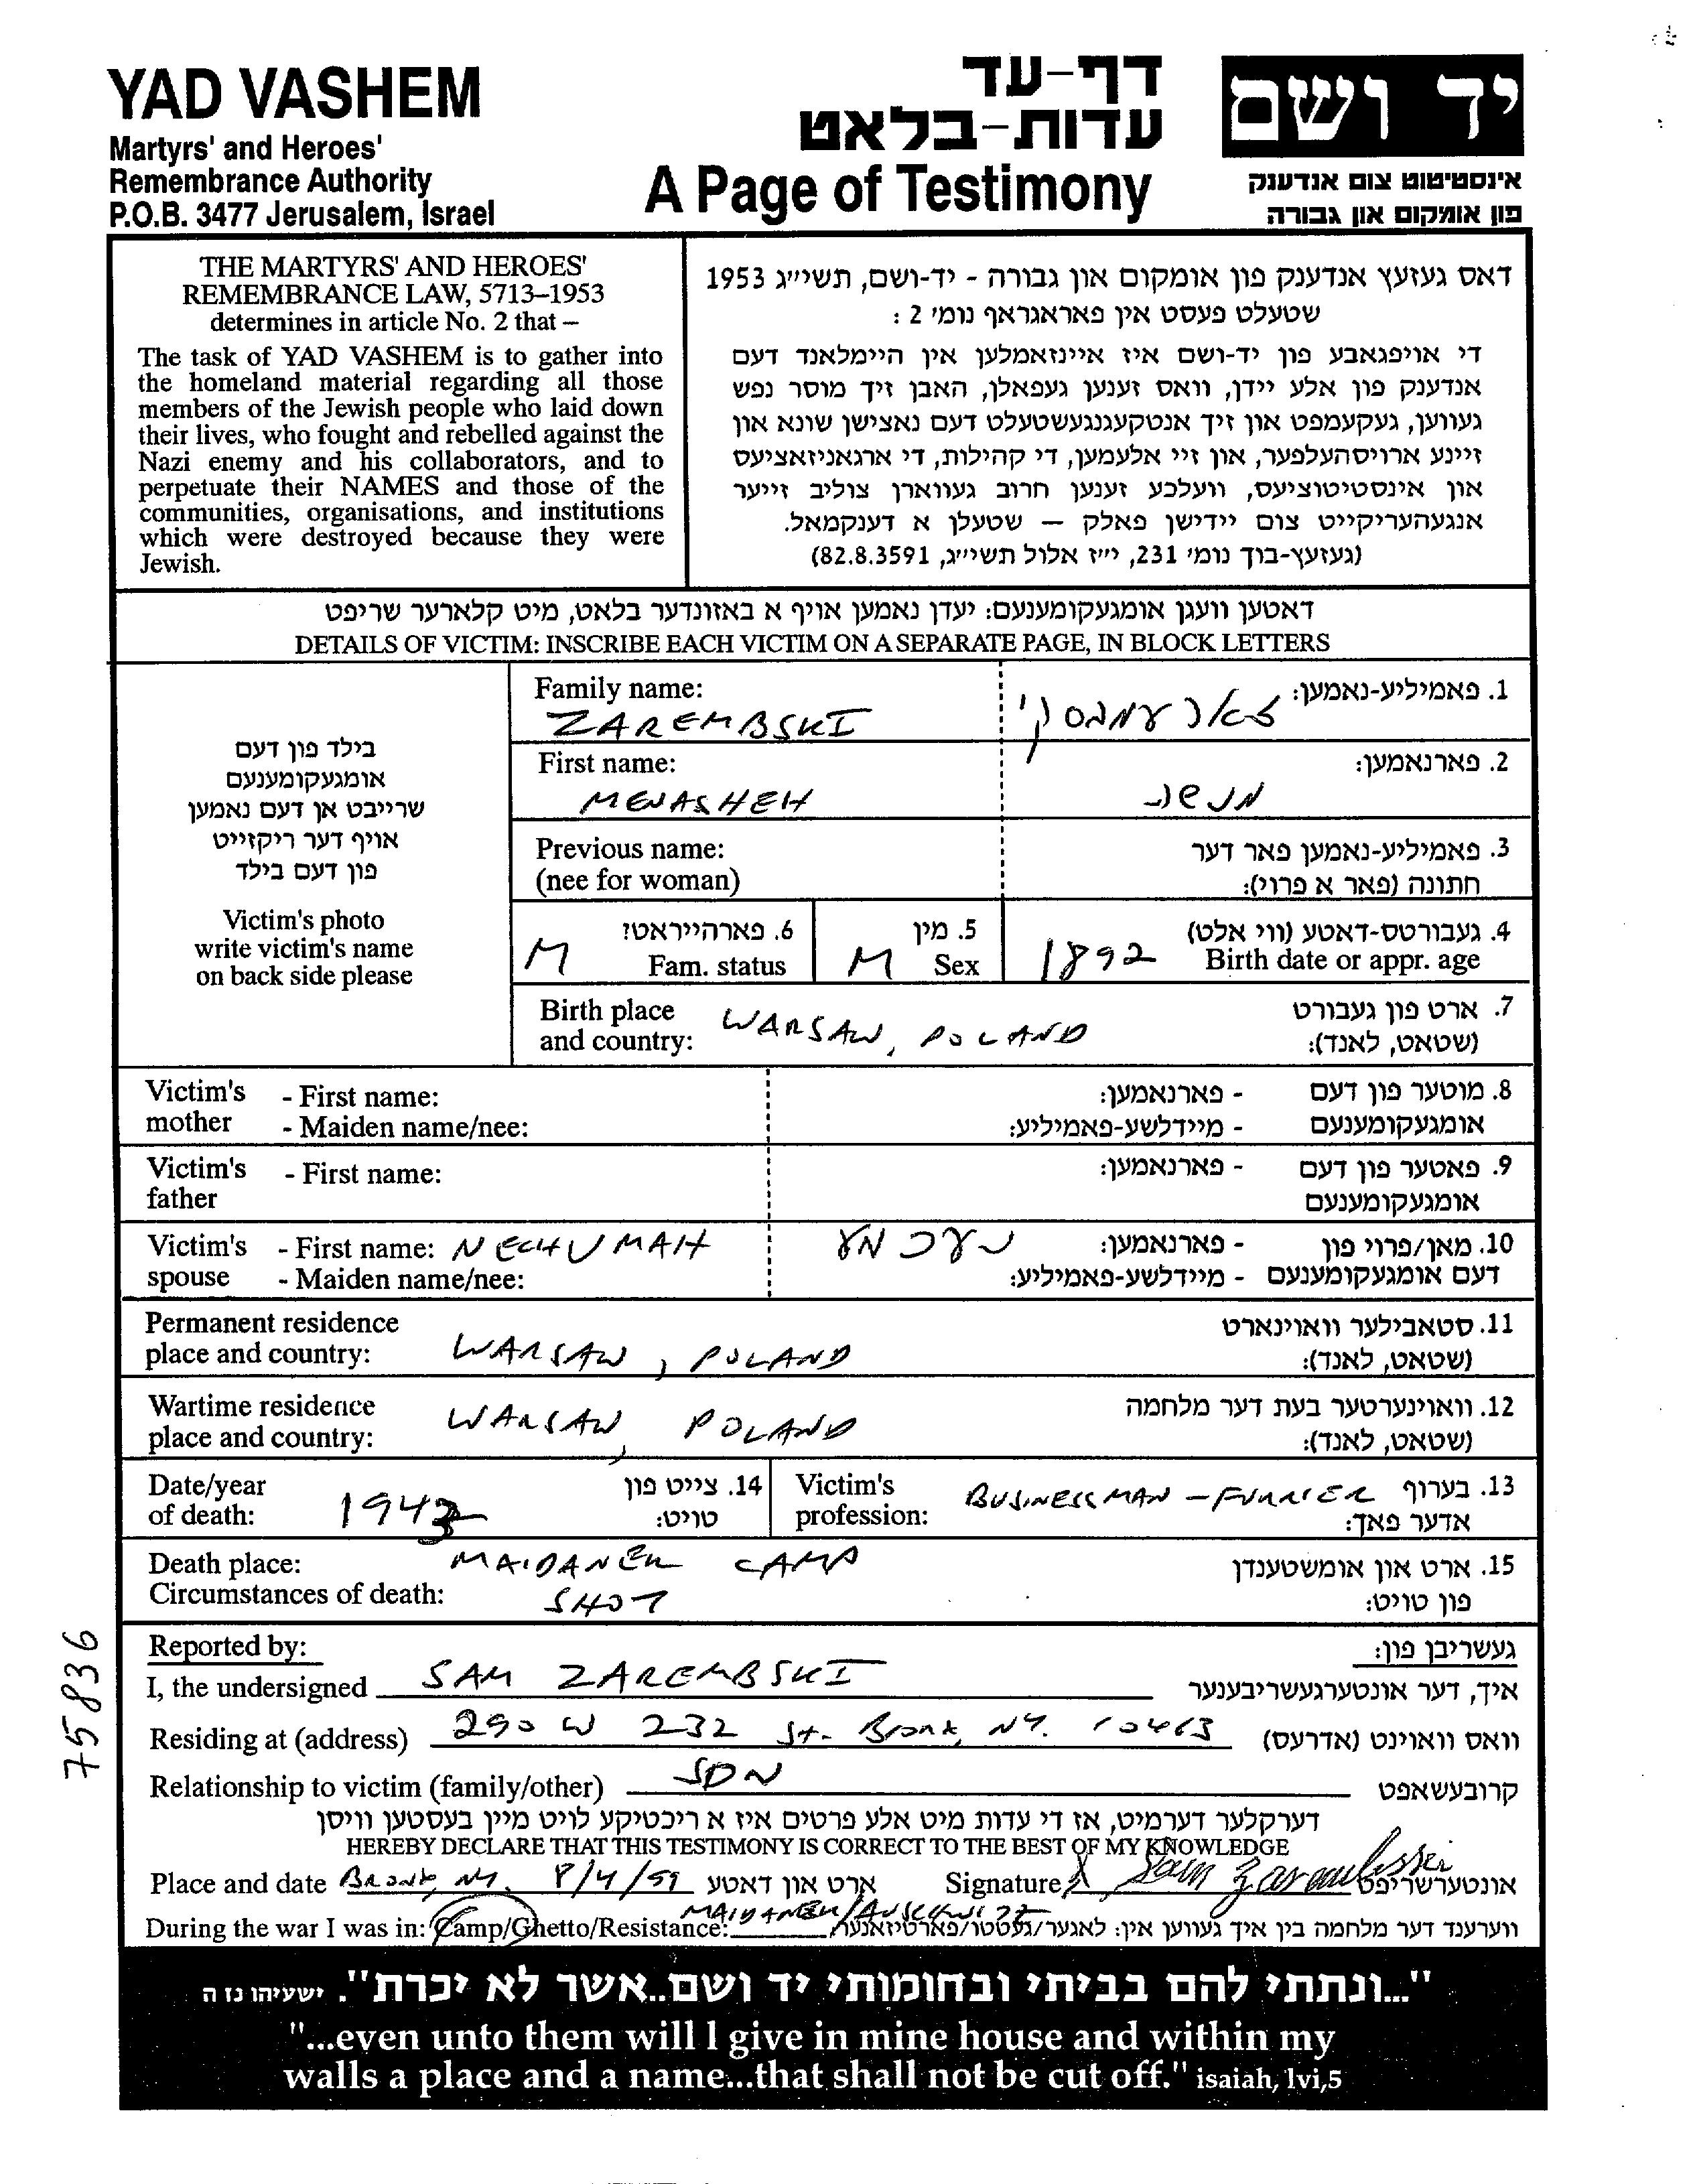 YAD VASHEM
Martyrs' and Heroes'
Remembrance Authority
P.O.B. 3477 Jerusalem, Israel
דף-עד
עדות-בלאט
A Page of Testimony
יד ושם
אינסטיטוט צום אנדענק
פון אומקום און גבורה
THE MARTYRS' AND HEROES'
REMEMBRANCE LAW, 5713–1953
determines in article No. 2 that –
The task of YAD VASHEM is to gather into
the homeland material regarding all those
members of the Jewish people who laid down
their lives, who fought and rebelled against the
Nazi enemy and his collaborators, and to
perpetuate their NAMES and those of the
communities, organisations, and institutions
which were destroyed because they were
Jewish.
דאס געזעץ אנדענק פון אומקום און גבורה - יד-ושם, תשי״ג 1953
שטעלט פעסט אין פאראגראף נומ׳ 2 :
די אויפגאבע פון יד-ושם איז איינזאמלען אין היימלאנד דעם
אנדענק פון אלע יידן, וואס זענען געפאלן, האבן זיך מוסר נפש
געווען, געקעמפט און זיך אנטקעגנגעשטעלט דעם נאצישן שונא און
זיינע ארויסהעלפער, און זיי אלעמען, די קהילות, די ארגאניזאציעס
און אינסטיטוציעס, וועלכע זענען חרוב געווארן צוליב זייער
אנגעהעריקייט צום יידישן פאלק — שטעלן א דענקמאל.
(געזעץ-בוך נומ׳ 231, י״ז אלול תשי״ג, 82.8.3591)
דאטען וועגן אומגעקומענעם: יעדן נאמען אויף א באזונדער בלאט, מיט קלארער שריפט
DETAILS OF VICTIM: INSCRIBE EACH VICTIM ON A SEPARATE PAGE, IN BLOCK LETTERS
בילד פון דעם
אומגעקומענעם
שרייבט אן דעם נאמען
אויף דער ריקזייט
פון דעם בילד
Victim's photo
write victim's name
on back side please
Family name: 1. פאמיליע-נאמען:
ZAREMBSKI זארעמבסקי
First name: 2. פארנאמען:
MENASHEH מנשה
Previous name: 3. פאמיליע-נאמען פאר דער
(nee for woman) חתונה (פאר א פרוי):
6. פארהייראט? 5. מין 4. געבורטס-דאטע (ווי אלט)
M Fam. status M Sex 1892 Birth date or appr. age
Birth place 7. ארט פון געבורט
and country: WARSAW, POLAND (שטאט, לאנד):
Victim's - First name: - פארנאמען: 8. מוטער פון דעם
mother - Maiden name/nee: - מיידלשע-פאמיליע: אומגעקומענעם
Victim's - First name: - פארנאמען: 9. פאטער פון דעם
father אומגעקומענעם
Victim's - First name: NECHUMAH נעכמע - פארנאמען: 10. מאן/פרוי פון
spouse - Maiden name/nee: - מיידלשע-פאמיליע: דעם אומגעקומענעם
Permanent residence 11. סטאבילער וואוינארט
place and country: WARSAW, POLAND (שטאט, לאנד):
Wartime residence 12. וואוינערטער בעת דער מלחמה
place and country: WARSAW, POLAND (שטאט, לאנד):
Date/year 14. צייט פון Victim's 13. בערוף
of death: 1943 טויט: profession: BUSINESSMAN - FURRIER אדער פאך:
Death place: MAIDANEK CAMP 15. ארט און אומשטענדן
Circumstances of death: SHOT פון טויט:
75836
Reported by: געשריבן פון:
I, the undersigned SAM ZAREMBSKI איך, דער אונטערגעשריבענער
Residing at (address) 290 W 232 St. Bronx, NY. 10463 וואס וואוינט (אדרעס)
Relationship to victim (family/other) SON קרובעשאפט
דערקלער דערמיט, אז די עדות מיט אלע פרטים איז א ריכטיקע לויט מיין בעסטען וויסן
HEREBY DECLARE THAT THIS TESTIMONY IS CORRECT TO THE BEST OF MY KNOWLEDGE
Place and date Bronx, NY. 8/4/99 ארט און דאטע Signature X Sam Zarembski אונטערשריפט
During the war I was in: Camp/Ghetto/Resistance: MAIDANEK/AUSCHWITZ ווערענד דער מלחמה בין איך געווען אין: לאגער/געטטו/פארטיזאנער
"...ונתתי להם בביתי ובחומותי יד ושם..אשר לא יכרת". ישעיהו נז ה
"...even unto them will I give in mine house and within my
walls a place and a name...that shall not be cut off." isaiah, lvi,5